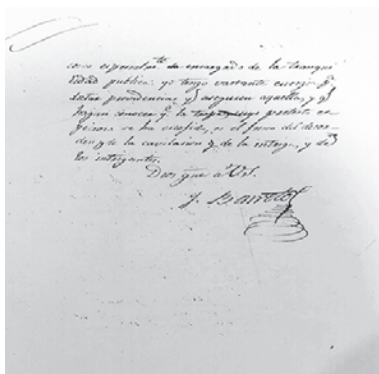 como especialm.te encargado de la tranqui
lidad publica: yo tengo vastante energia p.a
dictar providencias q.e aseguren aquella, y q.e
hagan conocer q.e la
se ha es el fruto del desor-
den, y de la cavilacion y de la intriga, y de
los intrigantes.
Dios gue á Vd.
J. Barreto